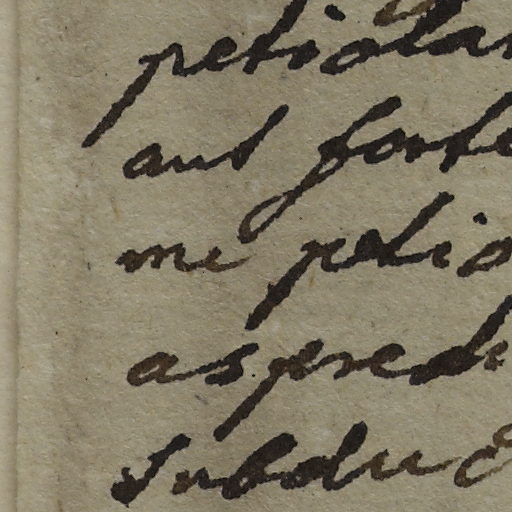 petiolar
aut forte
me petio
as predi
subduc